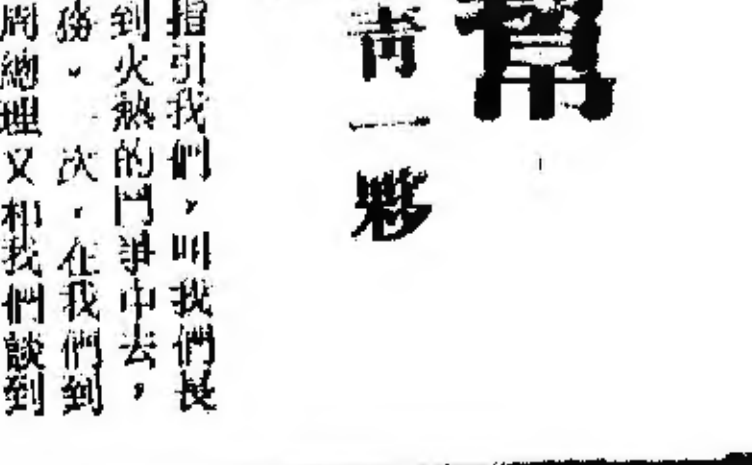 幫
青一夥
指引我們，叫我們長
到火熱的鬥爭中去，
務。一次，在我們到
周總理又和我們談到